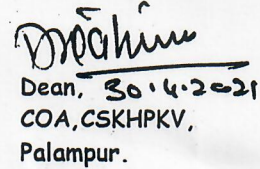 Dean, 30.4.2021
COA,CSKHPKV,
Palampur.